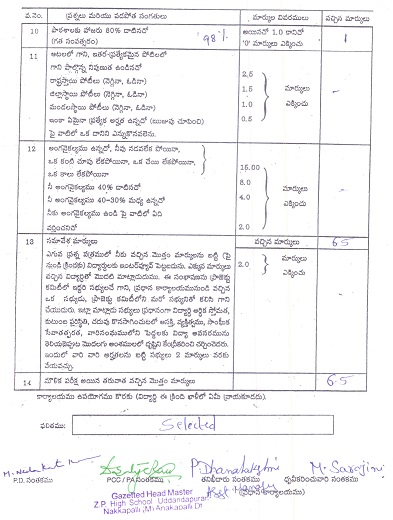 వ.నెం. ప్రశ్నలు మరియు పదవోత సంగతులు మార్కుల వివరములు వచ్చిన మార్కులు
10 పాఠశాలకు హాజరు 80% దాటినచో 98% అయినచో 1.0 కానిచో 1
(గత సంవత్సరం) '0' మార్కులు ఎక్కించు
11 ఆటలలో గాని, ఇతర ప్రత్యేకమైన పోటీలలో
గాని పాల్గొన్న నిపుణుత ఉండినచో
రాష్ట్రస్థాయి పోటీలు (నెగ్గినా, ఓడినా) 2.5
జిల్లాస్థాయి పోటీలు (నెగ్గినా, ఓడినా) 1.5 మార్కులు
మండలస్థాయి పోటీలు (నెగ్గినా, ఓడినా) 1.0 ఎక్కించు
ఇంకా ఏమైనా ప్రత్యేక అర్హత ఉన్నచో (ఋజువు చూపించి) 0.5
పై వాటిలో ఒక దానిని ఎన్నుకొనవలెను.
12 అంగవైకల్యము ఉన్నచో, నీవు నడవలేక పోయినా,
ఒక కంటి చూపు లేకపోయినా, ఒక చేయి లేకపోయినా 15.00
ఒక కాలు లేకపోయినా 8.0 మార్కులు
నీ అంగవైకల్యము 40% దాటినచో 4.0 ఎక్కించు
నీ అంగవైకల్యము 40-30% మధ్య ఉన్నచో
నీకు అంగవైకల్యము ఉండి పై వాటిలో ఏది 2.0
వర్తించనిచో
13 సమావేశ మార్కులు వచ్చిన మార్కులు 6.5
ఎగువ ప్రశ్న పత్రములో నీకు వచ్చిన మొత్తం మార్కులను బట్టి (పై
నుండి క్రిందకు) విద్యార్థులకు ఇంటర్వ్యూవ్ పెట్టబడును. ఎక్కువ మార్కులు 2.0 మార్కులు
వచ్చిన విద్యార్థితో మొదట మాట్లాడుదుము. ఈ సంభాషణను ప్రాజెక్టు
కమిటీలో ఇద్దరి సభ్యులచే గాని, ప్రధాన కార్యాలయమునుండి వచ్చిన
ఒక సభ్యుడు, ప్రాజెక్టు కమిటీలోని మరో సభ్యునితో కలిసి గాని
చేయుదురు. ఇట్లా మాట్లాడు సభ్యులు ప్రధానంగా విద్యార్థి ఆర్థిక స్తోమత,
కుటుంబ పరిస్థితి, చదువు కొనసాగించుటలో ఆసక్తి, వ్యక్తిత్వము, సాంఘిక
ఇందులో వారి వారి అర్హతలను బట్టి సభ్యులు 2 మార్కులు వరకు
వేయవచ్చు.
14 మౌఖిక పరీక్ష అయిన తరువాత వచ్చిన మొత్తం మార్కులు 6.5
కార్యాలయము ఉపయోగము కొరకు (విద్యార్థి ఈ క్రింది ఖాళీలో ఏమీ వ్రాయకూడదు).
ఫలితము: Selected
P. Dhanalakshmi M. Sarojini
P.D. సంతకము PCC / PA సంతకము తనిఖీదారు సంతకము ధృవీకరించువారి సంతకము
(ప్రధాన కార్యాలయము)
Gazetted Head Master
Z.P. High School Uddandapuram
Nakkapalli (M) Anakapalli Dt